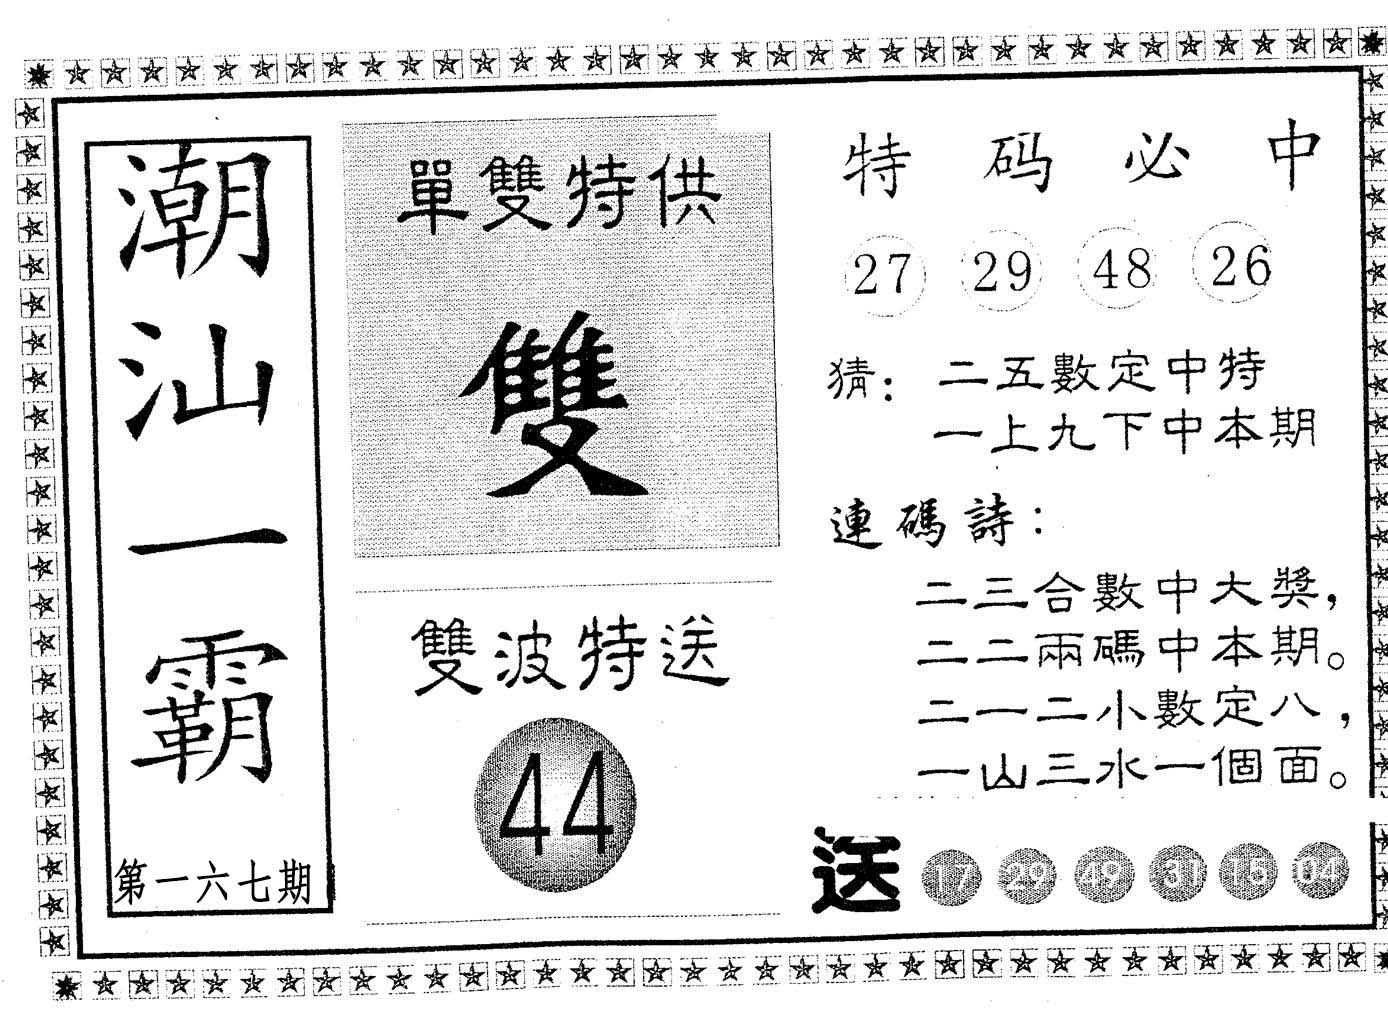 潮汕一霸
第一六七期
單雙特供
雙
雙波特送
44
特码必中
27 29 48 26
猜：二五數定中特
一上九下中本期
連碼詩：
二三合數中大獎，
二二兩碼中本期。
二一二小數定八，
一山三水一個面。
送 17 29 49 31 15 04